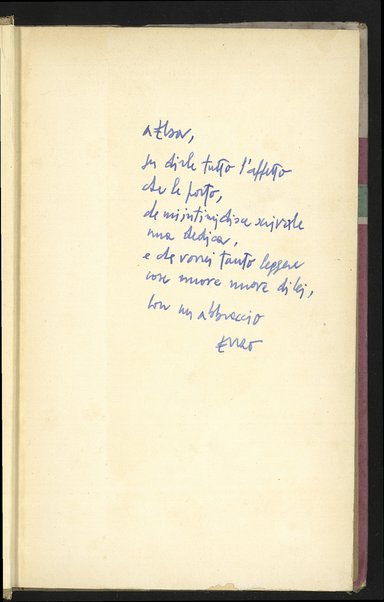 a Elsa,
per dirle tutto l'affetto
che le porto,
che mi intimidisce scriverle
una dedica,
e che vorrei tanto leggere
cose nuove nuove di lei,
con un abbraccio